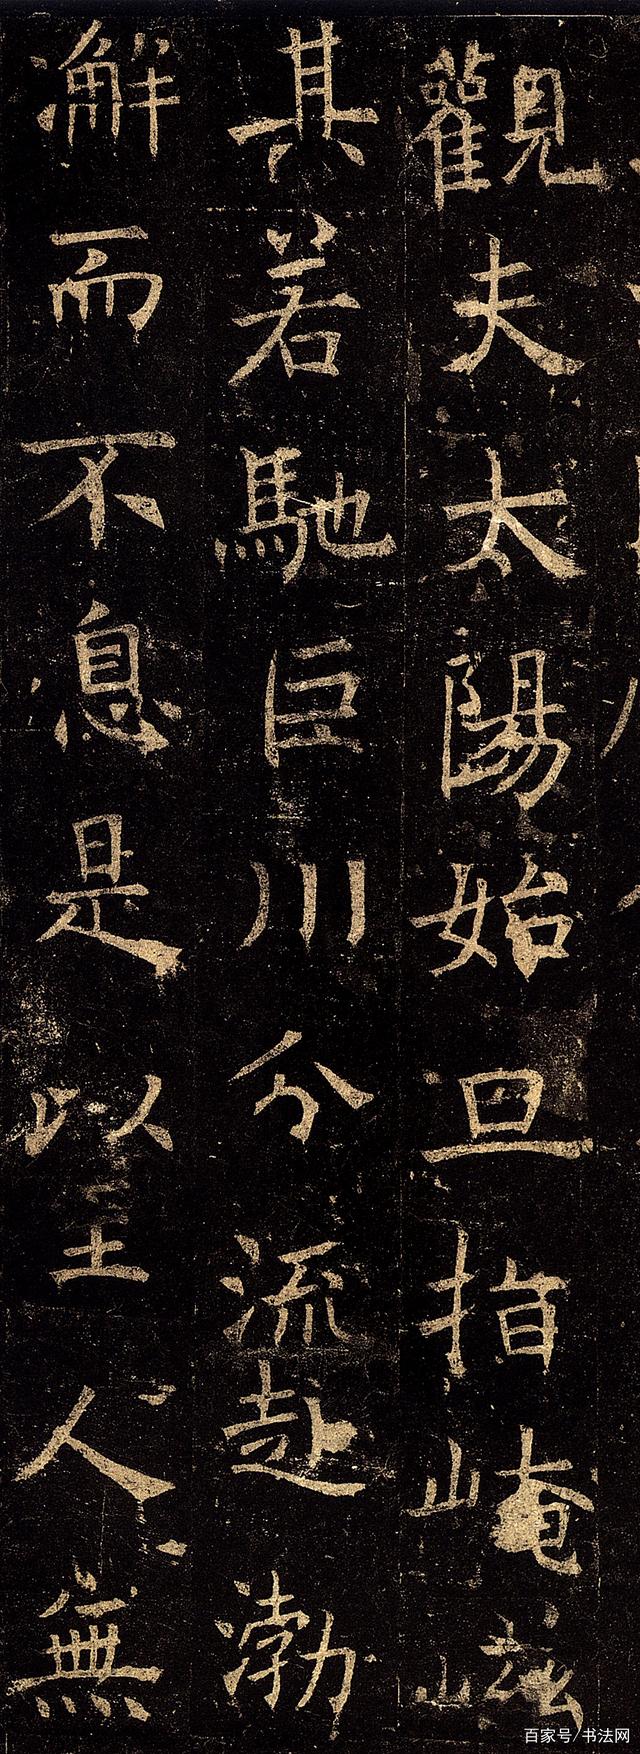 觀夫太陽始旦指崦嵫
其若馳巨川分流赴渤
澥而不息是以至人無
百家号/书法网